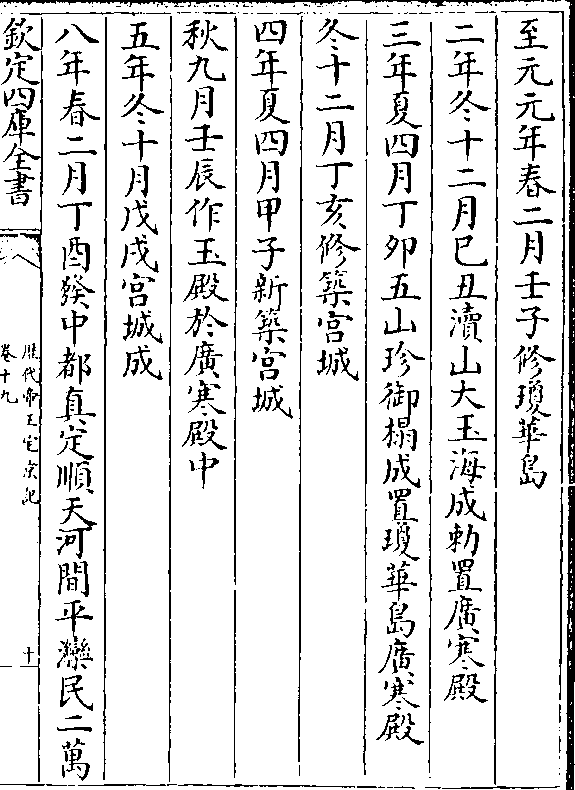 至元元年春二月壬子修瓊華島
二年冬十二月已丑瀆山大玉海成勅置廣寒殿
三年夏四月丁卯五山珍御榻成置瓊華島廣寒殿
冬十二月丁亥修築宮城
四年夏四月甲子新築宮城
秋九月壬辰作玉殿於廣寒殿中
五年冬十月戊戌宮城成
八年春二月丁酉發中都真定順天河間平灤民二萬
欽定四庫全書
歴代帝王宅京記
卷十九
十